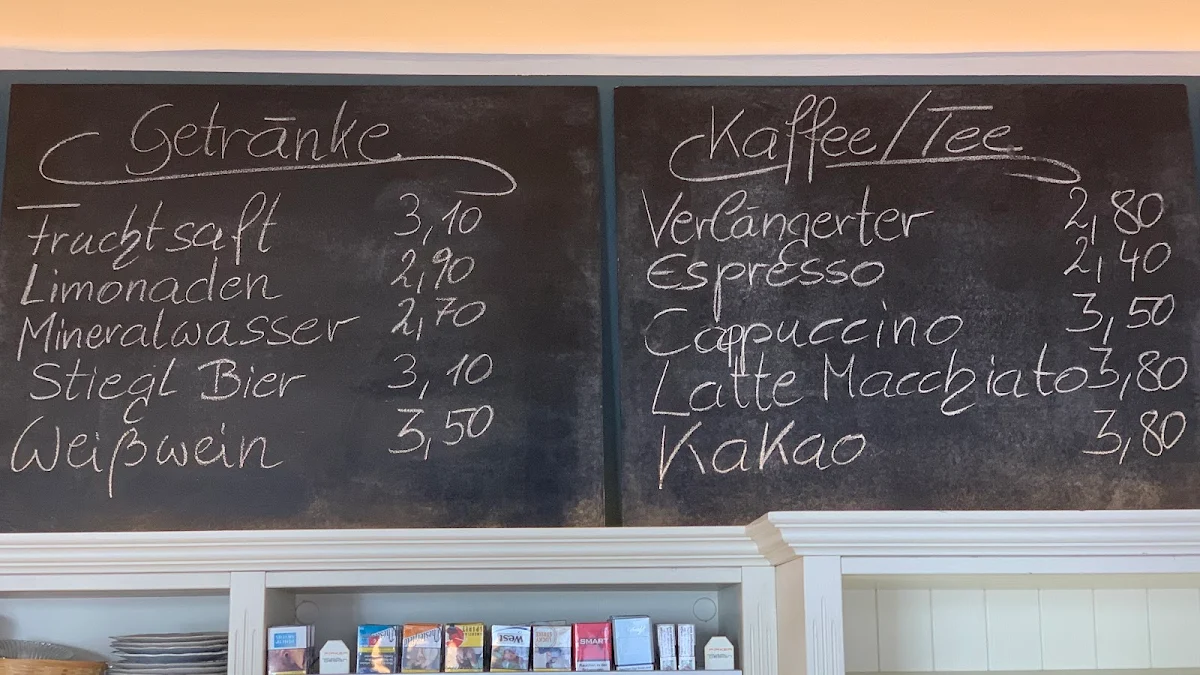 Getränke
Fruchtsaft 3,10
Limonaden 2,90
Mineralwasser 2,70
Stiegl Bier 3,10
Weißwein 3,50
Kaffee/Tee
Verlängerter 2,80
Espresso 2,40
Cappuccino 3,50
Latte Macchiato 3,80
Kakao 3,80
West
SMART